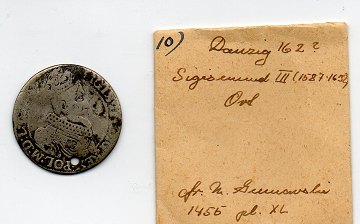 10)
Danzig 162?
Sigismund III (1587-1632)
Ort
cfr. M.
1455 pl. XL
POL·M·D·L